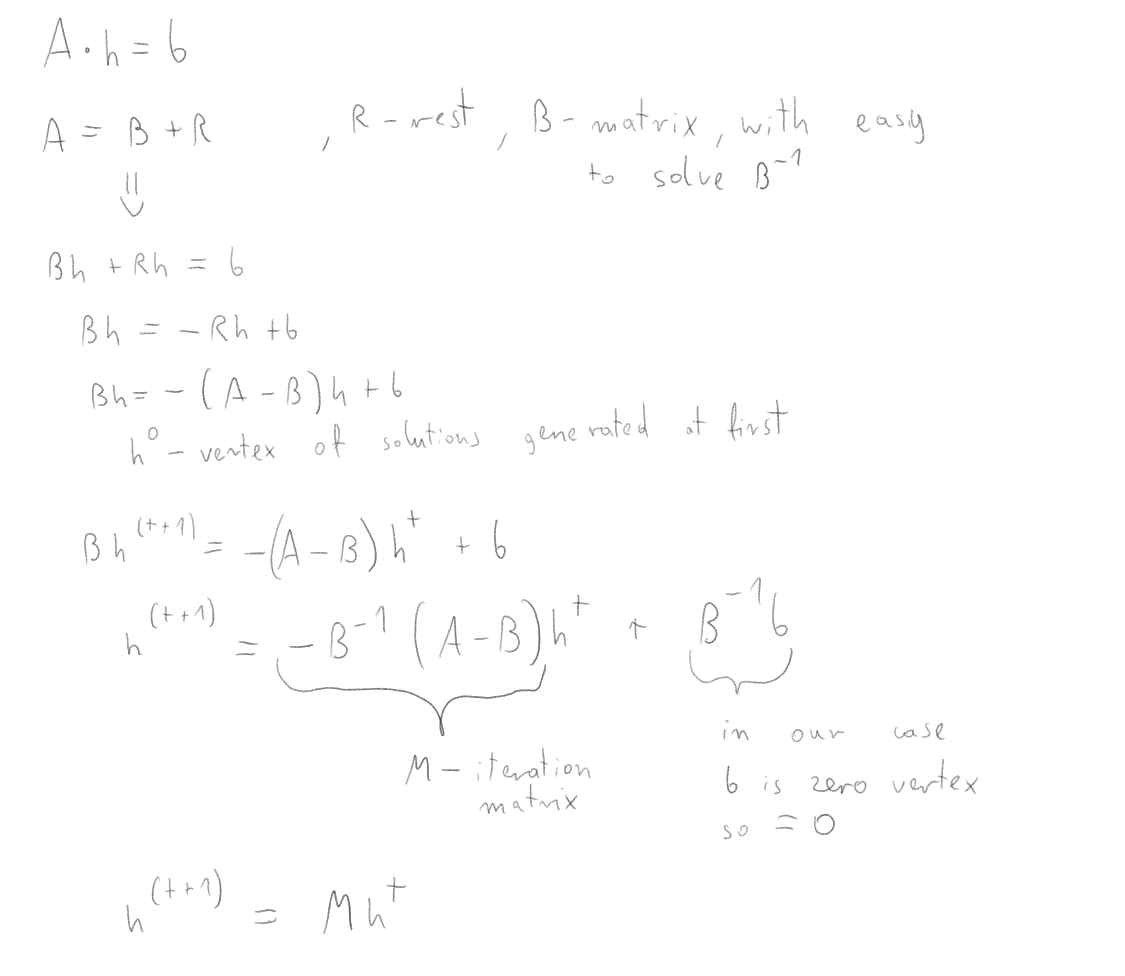 A · h = b
A = B + R , R - rest , B - matrix, with easy
to solve B⁻¹
⇓
Bh + Rh = b
Bh = - Rh + b
Bh = - (A - B)h + b
h⁰ - vertex of solutions generated at first
Bh⁽ᵗ⁺¹⁾ = -(A - B)hᵗ + b
h⁽ᵗ⁺¹⁾ = -B⁻¹(A - B)hᵗ + B⁻¹b
M - iteration
matrix
in our case
b is zero vertex
so = 0
h⁽ᵗ⁺¹⁾ = Mhᵗ